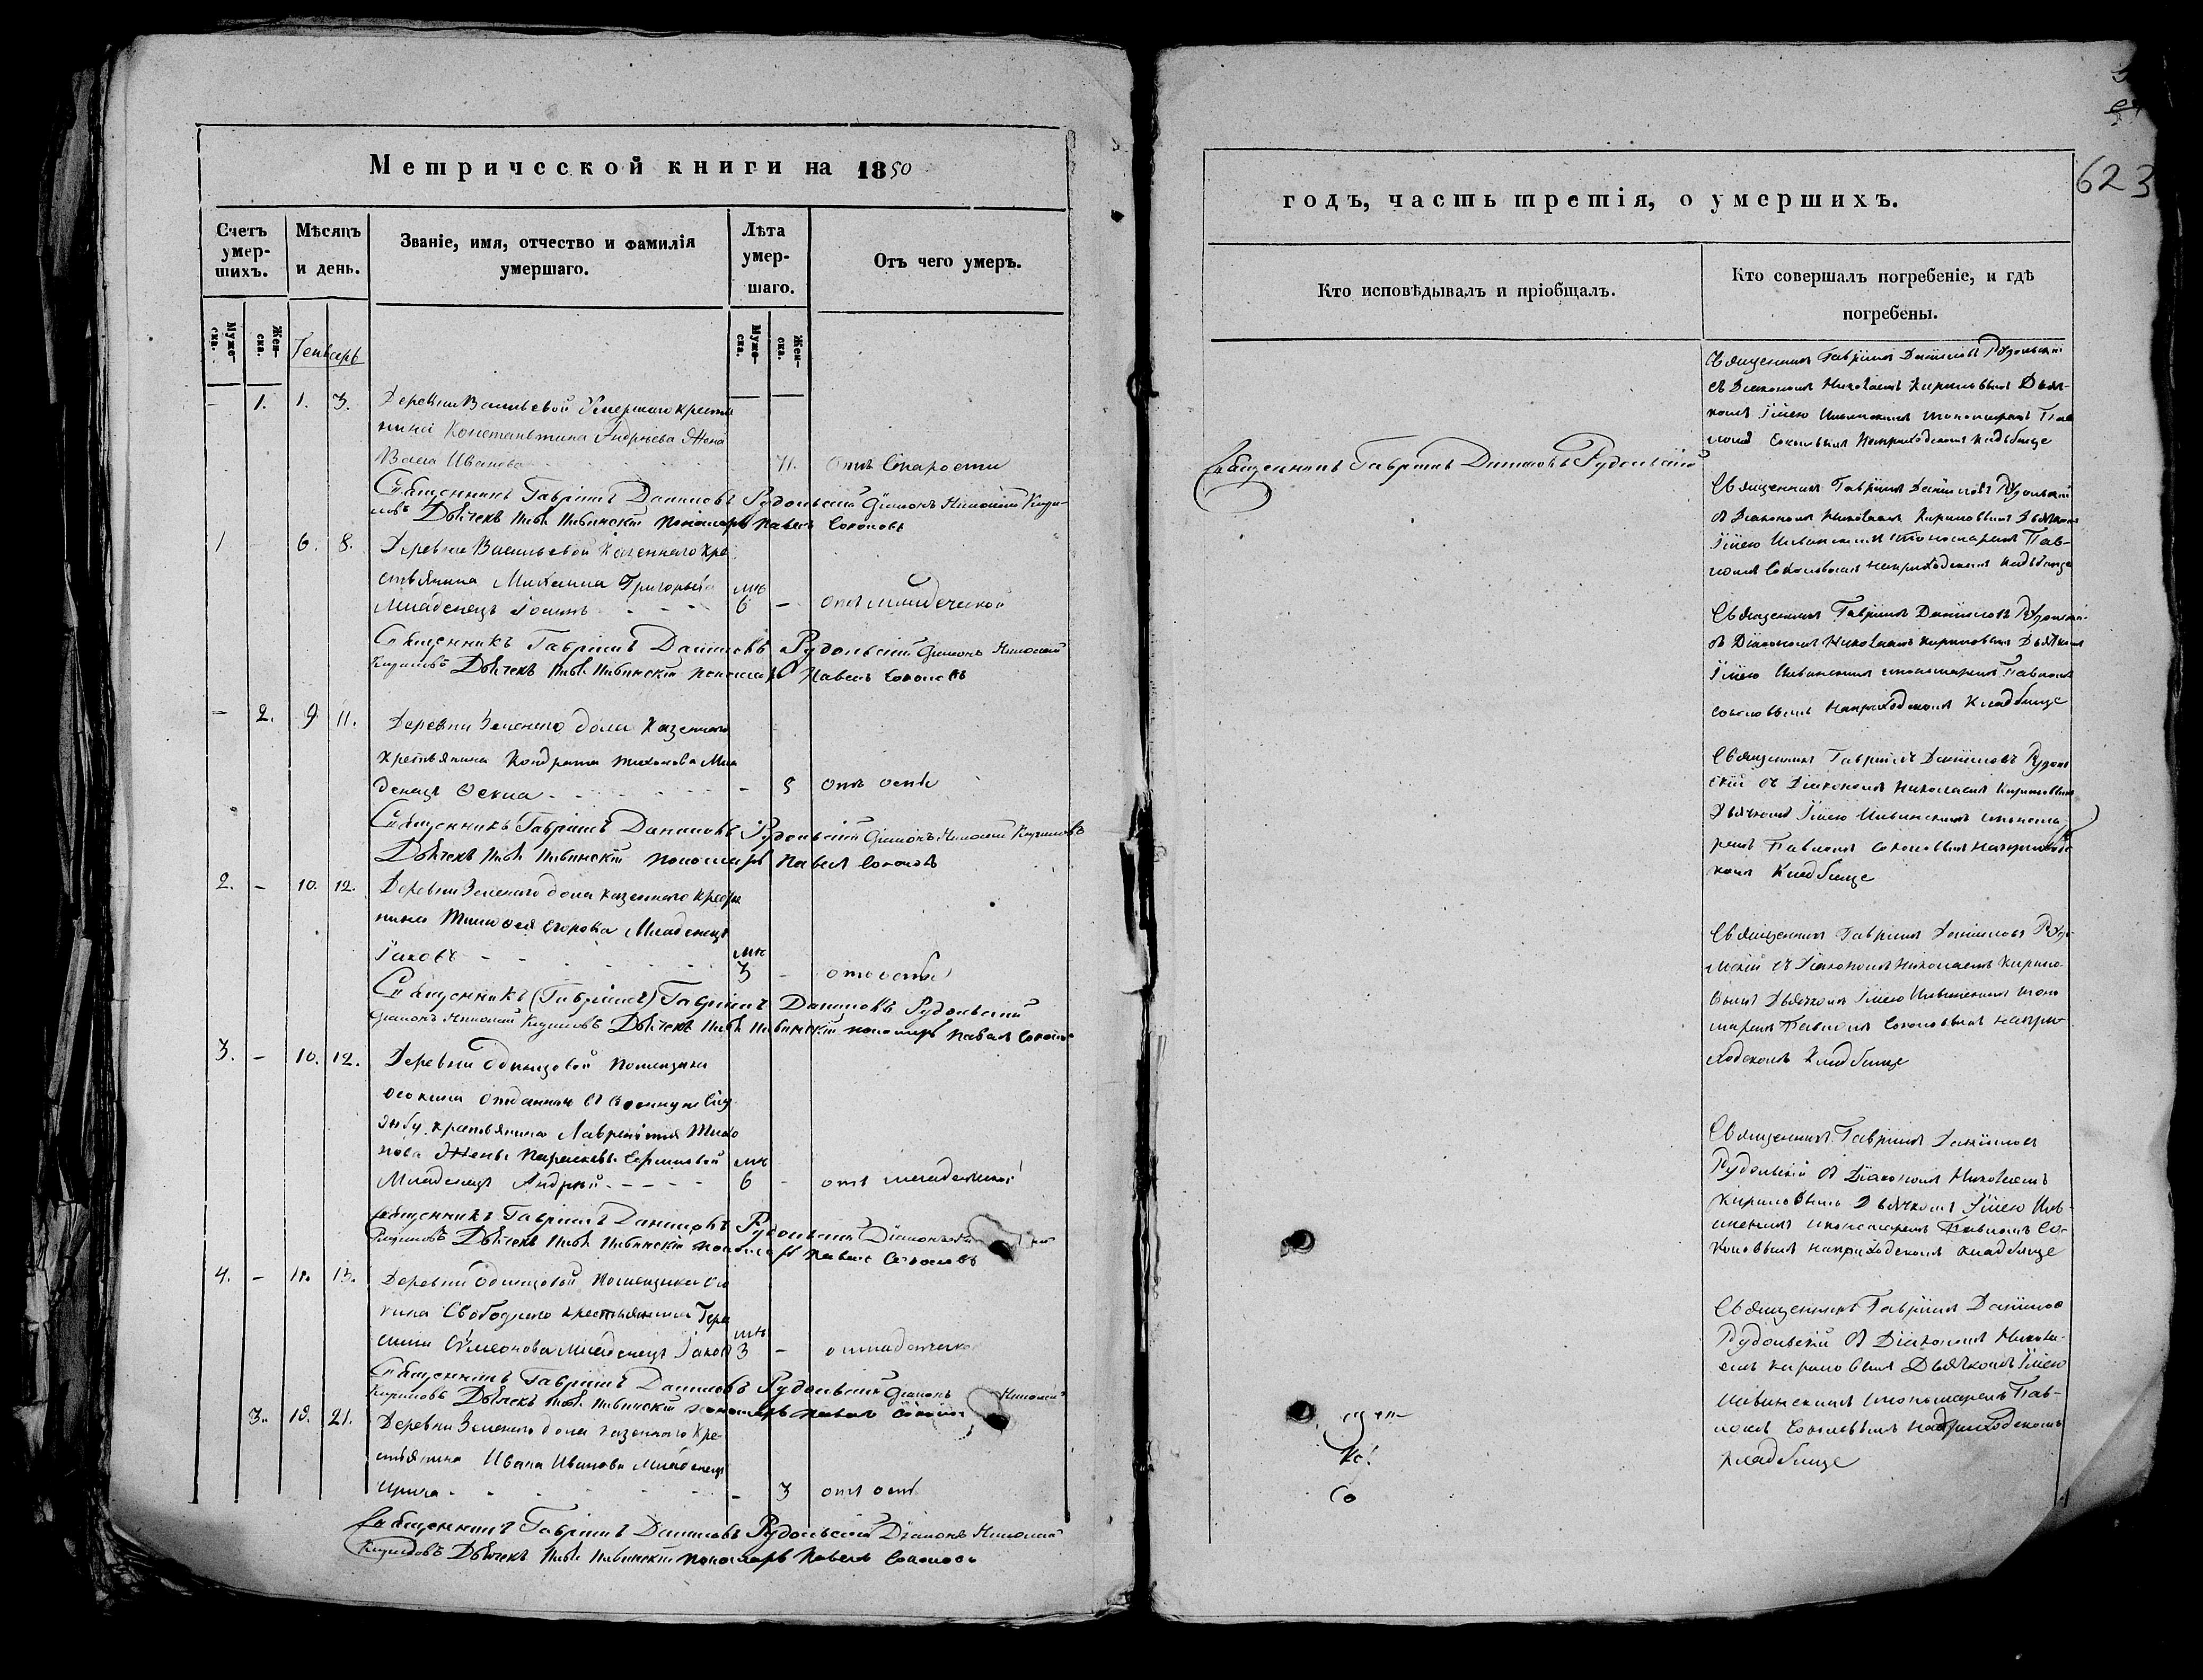 Метрической книги на 1850
Счетъ умер-шихъ.
Мѣсяцъ и день.
Званіе, имя, отчество и фамилія умершаго.
Лѣта умер-шаго.
Отъ чего умеръ.
Муже-ска.
Жен-ска.
Генварь
Муже-ска.
Жен-ска.
- 1. 1. 3. Деревни Васильевой Умершаго крестья
нина Константина Андрѣева Жена
Иванова 71. Отъ Старости
Священникъ Гавріилъ Даниловъ Рудольскій Діаконъ Николай Кири-
ловъ Дьячекъ Пономарь Павелъ Соколовъ
1 6. 8. Деревни Васильевой Казеннаго Кре
стьянина Михаила Григорьева мѣ
Младенецъ Іоаннъ 6 - отъ младенческой
Священникъ Гавріилъ Даниловъ Рудольскій Діаконъ Николай
Кириловъ Дьячекъ Пономарь Павелъ Соколовъ
- 2. 9 11. Деревни Зеленаго дола Казеннаго
Крестьянина Кондрата Тихонова Мла
денецъ - отъ оспы
Священникъ Гавріилъ Даниловъ Рудольскій Діаконъ Николай Кириловъ
Дьячекъ Пономарь Павелъ Соколовъ
2. - 10. 12. Деревни Зеленаго дола казеннаго крестья
нина Тимофея Егорова Младенецъ
Іаковъ мѣ 3 - отъ оспы
Священникъ (Гавріилъ) Гавріилъ Даниловъ Рудольскій
Діаконъ Николай Кириловъ Дьячекъ пономарь Павелъ Соколовъ
3. - 10. 12. Деревни Одинцовой Помещика
Осокина отданнаго въ военную Слу
жбу крестьянина Лаврентія Тихо
нова Жены Параскевы мѣ
Младенецъ Андрей 6 - отъ младенческой
Священникъ Гавріилъ Даниловъ Рудольскій Діаконъ
Кириловъ Дьячекъ пономарь Павелъ Соколовъ
4. - 11. 13. Деревни Одинцовой Помещика Осо
кина Свободнаго крестьянина Гера
сима Симеонова младенецъ Іаковъ мѣ 3 - отъ младенческой
Священникъ Гавріилъ Даниловъ Рудольскій Діаконъ Николай
Кириловъ Дьячекъ пономарь Павелъ Соколовъ
3. 19. 21. Деревни Зеленаго дола казеннаго Кре-
стьянина Ивана Иванова Младенецъ
Ирина - 3 отъ оспы
Священникъ Гавріилъ Даниловъ Рудольскій Діаконъ Николай
Кириловъ Дьячекъ пономарь Павелъ Соколовъ
623
годъ, часть третія, о умершихъ.
Кто исповѣдывалъ и пріобщалъ.
Кто совершалъ погребеніе, и гдѣ погребены.
Священникъ Гавріилъ Даниловъ Рудольскій
Священникъ Гавріилъ Даниловъ Рудольскій
съ Діакономъ Николаемъ Кириловымъ Дьяч-
комъ пономаремъ Пав
ломъ Соколовымъ На приходскомъ кладбище
Священникъ Гавріилъ Даниловъ Рудольскій
съ Діакономъ Николаемъ Кириловымъ Дьячкомъ
пономаремъ Пав-
ломъ Соколовымъ на приходскомъ кладбище
Священникъ Гавріилъ Даниловъ Рудольскій
съ Діакономъ Николаемъ Кириловымъ Дьячкомъ
пономаремъ Павломъ
Соколовымъ На приходскомъ Кладбище
Священникъ Гавріилъ Даниловъ Рудоль
скій съ Діакономъ Николаемъ Кириловымъ
Дьячкомъ понома
ремъ Павломъ Соколовымъ на приход
скомъ Кладбище
Священникъ Гавріилъ Даниловъ Рудо
льскій съ Діакономъ Николаемъ Кирило
вымъ Дьячкомъ поно
маремъ Павломъ Соколовымъ на при-
ходскомъ Кладбище
Священникъ Гавріилъ Даниловъ
Рудольскій съ Діакономъ Николаемъ
Кириловымъ Дьячкомъ
пономаремъ Павломъ Со-
коловымъ на приходскомъ кладбище
Священникъ Гавріилъ Данилов
Рудольскій съ Діакономъ Никола-
емъ Кириловымъ Дьячкомъ
пономаремъ Пав-
ломъ Соколовымъ На приходскомъ
кладбище